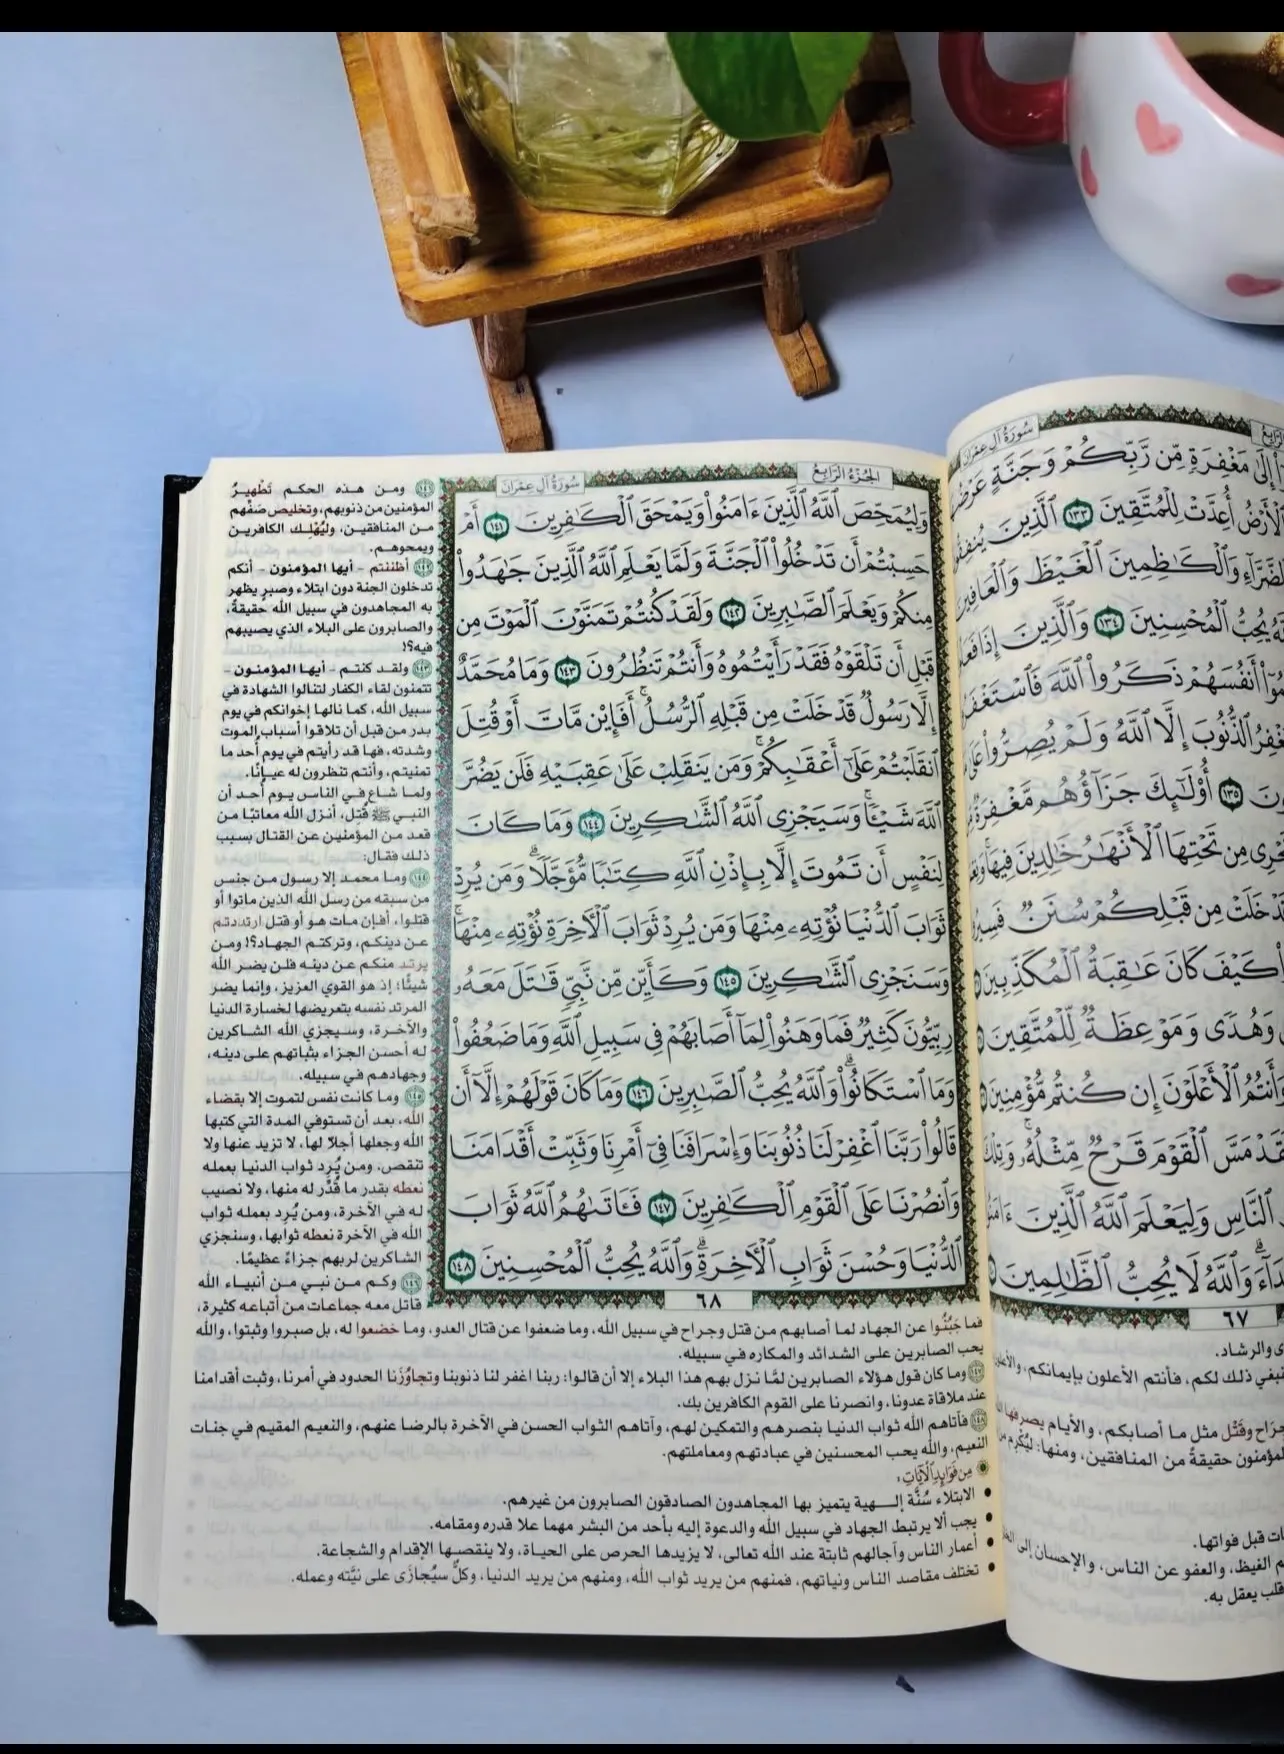 الجُزْءُ الرَّابِعُ
سُورَةُ آلِ عِمْرَانَ
وَلِيُمَحِّصَ ٱللَّهُ ٱلَّذِينَ ءَامَنُوا۟ وَيَمْحَقَ ٱلْكَٰفِرِينَ ١٤١ أَمْ
حَسِبْتُمْ أَن تَدْخُلُوا۟ ٱلْجَنَّةَ وَلَمَّا يَعْلَمِ ٱللَّهُ ٱلَّذِينَ جَٰهَدُوا۟
مِنكُمْ وَيَعْلَمَ ٱلصَّٰبِرِينَ ١٤٢ وَلَقَدْ كُنتُمْ تَمَنَّوْنَ ٱلْمَوْتَ مِن
قَبْلِ أَن تَلْقَوْهُ فَقَدْ رَأَيْتُمُوهُ وَأَنتُمْ تَنظُرُونَ ١٤٣ وَمَا مُحَمَّدٌ
إِلَّا رَسُولٌ قَدْ خَلَتْ مِن قَبْلِهِ ٱلرُّسُلُ ۚ أَفَإِي۟ن مَّاتَ أَوْ قُتِلَ
ٱنقَلَبْتُمْ عَلَىٰٓ أَعْقَٰبِكُمْ ۚ وَمَن يَنقَلِبْ عَلَىٰ عَقِبَيْهِ فَلَن يَضُرَّ
ٱللَّهَ شَيْـًٔا ۗ وَسَيَجْزِى ٱللَّهُ ٱلشَّٰكِرِينَ ١٤٤ وَمَا كَانَ
لِنَفْسٍ أَن تَمُوتَ إِلَّا بِإِذْنِ ٱللَّهِ كِتَٰبًا مُّؤَجَّلًا ۗ وَمَن يُرِدْ
ثَوَابَ ٱلدُّنْيَا نُؤْتِهِۦ مِنْهَا وَمَن يُرِدْ ثَوَابَ ٱلْـَٔاخِرَةِ نُؤْتِهِۦ مِنْهَا ۚ
وَسَنَجْزِى ٱلشَّٰكِرِينَ ١٤٥ وَكَأَيِّن مِّن نَّبِىٍّ قَٰتَلَ مَعَهُۥ
رِبِّيُّونَ كَثِيرٌ فَمَا وَهَنُوا۟ لِمَآ أَصَابَهُمْ فِى سَبِيلِ ٱللَّهِ وَمَا ضَعُفُوا۟
وَمَا ٱسْتَكَانُوا۟ ۗ وَٱللَّهُ يُحِبُّ ٱلصَّٰبِرِينَ ١٤٦ وَمَا كَانَ قَوْلَهُمْ إِلَّآ أَن
قَالُوا۟ رَبَّنَا ٱغْفِرْ لَنَا ذُنُوبَنَا وَإِسْرَافَنَا فِىٓ أَمْرِنَا وَثَبِّتْ أَقْدَامَنَا
وَٱنصُرْنَا عَلَى ٱلْقَوْمِ ٱلْكَٰفِرِينَ ١٤٧ فَـَٔاتَىٰهُمُ ٱللَّهُ ثَوَابَ
ٱلدُّنْيَا وَحُسْنَ ثَوَابِ ٱلْـَٔاخِرَةِ ۗ وَٱللَّهُ يُحِبُّ ٱلْمُحْسِنِينَ ١٤٨
٦٨
١٤١ ومن هذه الحكم تَطْهيرُ
المؤمنين من ذنوبهم، وتخليص صَفِّهم
من المنافقين، وليُهْلِك الكافرين
ويمحوهم.
١٤٢ أظننتم - أيها المؤمنون - أنكم
تدخلون الجنة دون ابتلاء وصبرٍ يظهر
به المجاهدون في سبيل الله حقيقةً،
والصابرون على البلاء الذي يصيبهم
فيه؟!
١٤٣ ولقد كنتم - أيها المؤمنون -
تتمنون لقاء الكفار لتنالوا الشهادة في
سبيل الله، كما نالها إخوانكم في يوم
بدر من قبل أن تلاقوا أسباب الموت
وشدته، فها قد رأيتم في يوم أُحد ما
تمنيتم، وأنتم تنظرون له عيانًا.
ولما شاع في الناس يوم أحد أن
النبي ﷺ قُتل، أنزل الله معاتبًا من
قعد من المؤمنين عن القتال بسبب
ذلك فقال:
١٤٤ وما محمد إلا رسول من جنس
من سبقه من رسل الله الذين ماتوا أو
قتلوا، أفإن مات هو أو قتل ارتددتم
عن دينكم، وتركتم الجهاد؟! ومن
يرتد منكم عن دينه فلن يضر الله
شيئًا؛ إذ هو القوي العزيز، وإنما يضر
المرتد نفسه بتعريضها لخسارة الدنيا
والآخرة، وسيجزي الله الشاكرين
له أحسن الجزاء بثباتهم على دينه،
وجهادهم في سبيله.
١٤٥ وما كانت نفس لتموت إلا بقضاء
الله، بعد أن تستوفي المدة التي كتبها
الله وجعلها أجلًا لها، لا تزيد عنها ولا
تنقص، ومن يُرِد ثواب الدنيا بعمله
نعطه بقدر ما قُدِّر له منها، ولا نصيب
له في الآخرة، ومن يُرِد بعمله ثواب
الله في الآخرة نعطه ثوابها، وسنجزي
الشاكرين لربهم جزاءً عظيمًا.
١٤٦ وكم من نبي من أنبياء الله
قاتل معه جماعات من أتباعه كثيرة،
فما جَبُنُوا عن الجهاد لما أصابهم من قتل وجراح في سبيل الله، وما ضعفوا عن قتال العدو، وما خضعوا له، بل صبروا وثبتوا، والله
يحب الصابرين على الشدائد والمكاره في سبيله.
١٤٧ وما كان قول هؤلاء الصابرين لمَّا نزل بهم هذا البلاء إلا أن قالوا: ربنا اغفر لنا ذنوبنا وتجاوُزَنا الحدود في أمرنا، وثبت أقدامنا
عند ملاقاة عدونا، وانصرنا على القوم الكافرين بك.
١٤٨ فآتاهم الله ثواب الدنيا بنصرهم والتمكين لهم، وآتاهم الثواب الحسن في الآخرة بالرضا عنهم، والنعيم المقيم في جنات
النعيم، والله يحب المحسنين في عبادتهم ومعاملتهم.
مِن فَوَائِدِ ٱلْآيَاتِ:
• الابتلاء سُنَّة إلـهية يتميز بها المجاهدون الصادقون الصابرون من غيرهم.
• يجب ألا يرتبط الجهاد في سبيل الله والدعوة إليه بأحد من البشر مهما علا قدره ومقامه.
• أعمار الناس وآجالهم ثابتة عند الله تعالى، لا يزيدها الحرص على الحياة، ولا ينقصها الإقدام والشجاعة.
• تختلف مقاصد الناس ونياتهم، فمنهم من يريد ثواب الله، ومنهم من يريد الدنيا، وكلٌّ سيُجازَى على نيَّته وعمله.
سُورَةُ آلِ عِمْرَانَ
إِلَىٰ مَغْفِرَةٍ مِّن رَّبِّكُمْ وَجَنَّةٍ
أُعِدَّتْ لِلْمُتَّقِينَ ١٣٣ ٱلَّذِينَ
وَٱلْكَٰظِمِينَ ٱلْغَيْظَ وَٱلْعَافِينَ
يُحِبُّ ٱلْمُحْسِنِينَ ١٣٤ وَٱلَّذِينَ إِذَا
أَنفُسَهُمْ ذَكَرُوا۟ ٱللَّهَ
ٱلذُّنُوبَ إِلَّا ٱللَّهُ وَلَمْ يُصِرُّوا۟
١٣٥ أُو۟لَٰٓئِكَ جَزَآؤُهُم مَّغْفِرَةٌ
مِن تَحْتِهَا ٱلْأَنْهَٰرُ خَٰلِدِينَ فِيهَا ۚ
خَلَتْ مِن قَبْلِكُمْ سُنَنٌ
كَيْفَ كَانَ عَٰقِبَةُ ٱلْمُكَذِّبِينَ
وَهُدًى وَمَوْعِظَةٌ لِّلْمُتَّقِينَ
وَأَنتُمُ ٱلْأَعْلَوْنَ إِن كُنتُم مُّؤْمِنِينَ
مَسَّ ٱلْقَوْمَ قَرْحٌ مِّثْلُهُۥ ۚ
ٱلنَّاسِ وَلِيَعْلَمَ ٱللَّهُ ٱلَّذِينَ
وَٱللَّهُ لَا يُحِبُّ ٱلظَّٰلِمِينَ
٦٧
والرشاد.
ذلك لكم، فأنتم الأعلون بإيمانكم،
وقَتْل مثل ما أصابكم، والأيام يصرفها
حقيقةً من المنافقين، ومنها:
قبل فواتها.
الغيظ، والعفو عن الناس، والإحسان
يعقل به.